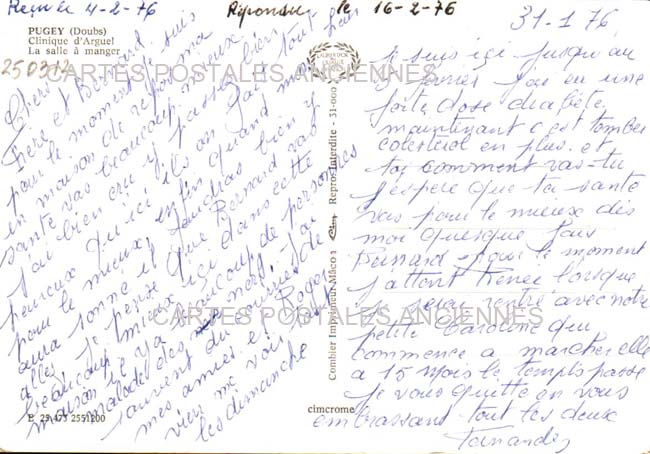 Reçu le 4-2-76 Répondu le 16-2-76
PUGEY (Doubs)
Clinique d'Arguel
La salle à manger
250312
CARTES POSTALES ANCIENNES
Chers
frère et Bernard. Je suis
pour le moment
en maison de repos ma
santé vas beaucoup mieux
j'ai bien cru y passer bien
heureux qu'ici ils on tout fais
pour le mieux, enfin quand mon
aura sonné il faudras bien y
aller je pense que Bernard vas
beaucoup mieux ici dans cette
maison il y a beaucoup de personnes
malade des nerfs j'ai
souvent du courrier de
mes amies et Roger
vien me voir
les dimanche
E 25 473 2551200
Combier Imprimeur Mâcon
Cim
Repro. Interdite - 31-000
cimcrome
CARTES POSTALES ANCIENNES
31-1 76
Je suis ici jusqu'au
février j'ai eu une
forte dose diabète
maintenant c'est tomber
colesterol en plus. et
toi comment vas-tu
j'espère que ta santé
vas pour le mieux dis
moi quesque fais
Bernard pour le moment
j'attent Renée lorsque
je serai rentré avec notre
petite Caroline qui
commence a marcher elle
a 15 mois le temps passe
je vous quitte en vous
embrassant tout les deux
Fernande